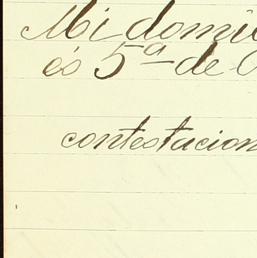 Mi domi
és 5ª de
contestacion